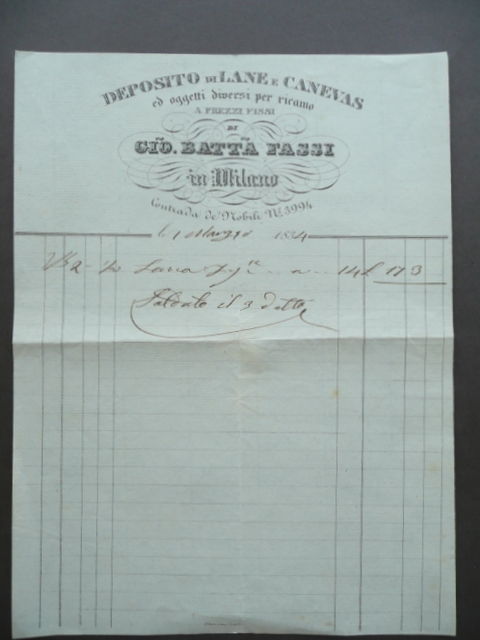 DEPOSITO DI LANE E CANEVAS
ed oggetti diversi per ricamo
A PREZZI FISSI
DI
GIO. BATTA FASSI
in Milano
Contrada de' Nobili N.º 3994
li 1 Marzo 1834
Lana a 14 L 17 3
Saldato il 3 detto